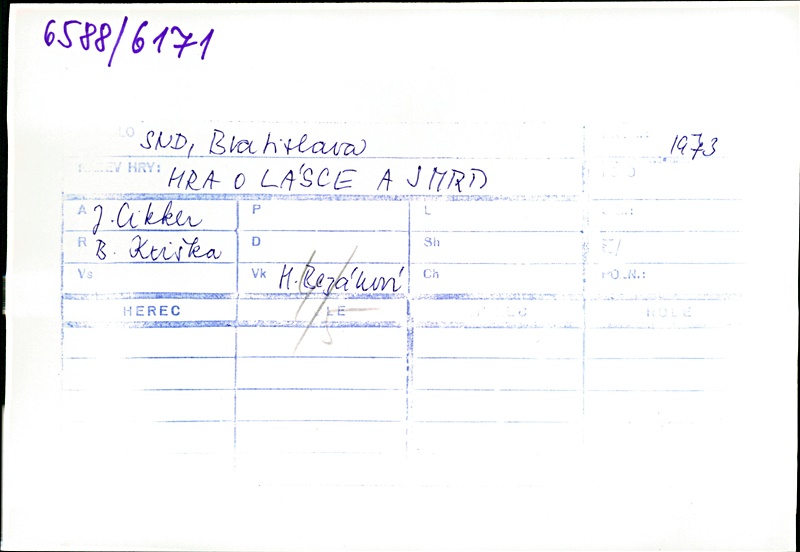 6588/6171
SND, Bratislava 1973
HRY: HRA O LÁSCE A SMRTI
A J. Cikker P L
R B. Kriška D Sh
Vs Vk M. Bezáková Ch
HEREC